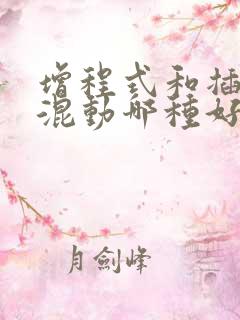 增程式和插
混動哪種好
月劍峰